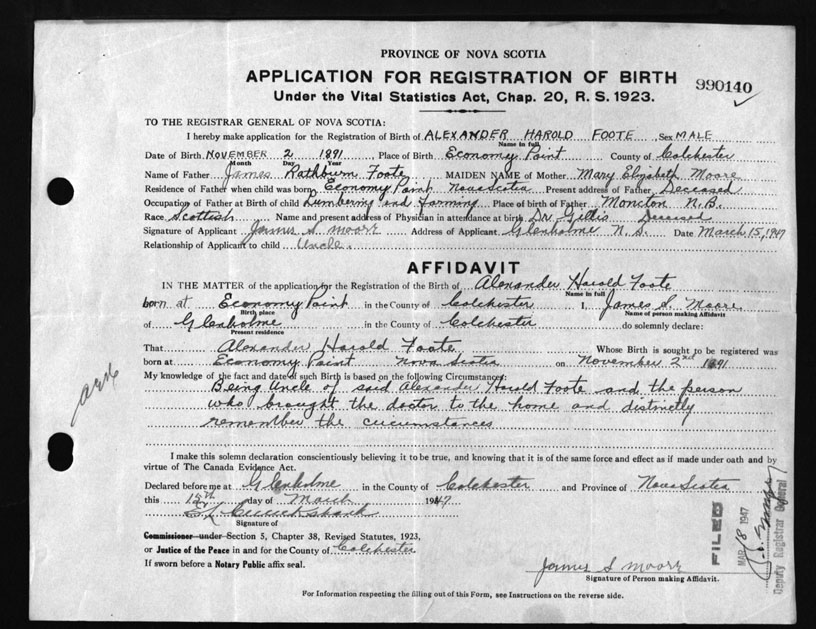 PROVINCE OF NOVA SCOTIA
APPLICATION FOR REGISTRATION OF BIRTH
990140
Under the Vital Statistics Act, Chap. 20, R. S. 1923.
TO THE REGISTRAR GENERAL OF NOVA SCOTIA:
I hereby make application for the Registration of Birth of ALEXANDER HAROLD FOOTE Sex MALE
Name in full
Date of Birth NOVEMBER 2 1891 Place of Birth Economy Point County of Colchester
Month Day Year
Name of Father James Rathburn Foote MAIDEN NAME of Mother Mary Elizabeth Moore
Residence of Father when child was born Economy Point Nova Scotia Present address of Father Deceased
Occupation of Father at Birth of child Lumbering and Farming Place of birth of Father Moncton N.B.
Race Scottish Name and present address of Physician in attendance at birth Dr. Gillis Deceased
Signature of Applicant James S. Moore Address of Applicant Glenholme N. S. Date March 15, 1947
Relationship of Applicant to child Uncle.
AFFIDAVIT
IN THE MATTER of the application for the Registration of the Birth of Alexander Harold Foote
Name in full
born at Economy Point in the County of Colchester I, James S. Moore
Birth place Name of person making Affidavit
of Glenholme in the County of Colchester do solemnly declare:
Present residence
That Alexander Harold Foote Whose Birth is sought to be registered was
born at Economy Point Nova Scotia on November 2nd 1891
My knowledge of the fact and date of such Birth is based on the following Circumstances:
Being Uncle of said Alexander Harold Foote and the person
who brought the doctor to the home and distinctly
remember the circumstances
I make this solemn declaration conscientiously believing it to be true, and knowing that it is of the same force and effect as if made under oath and by
virtue of The Canada Evidence Act.
Declared before me at Glenholme in the County of Colchester and Province of Nova Scotia
this 15th day of March 1947
Signature of
Commissioner under Section 5, Chapter 38, Revised Statutes, 1923,
or Justice of the Peace in and for the County of Colchester
If sworn before a Notary Public affix seal.
James S Moore
Signature of Person making Affidavit.
FILED
MAR 18 1947
Deputy Registrar General
For Information respecting the filling out of this Form, see Instructions on the reverse side.